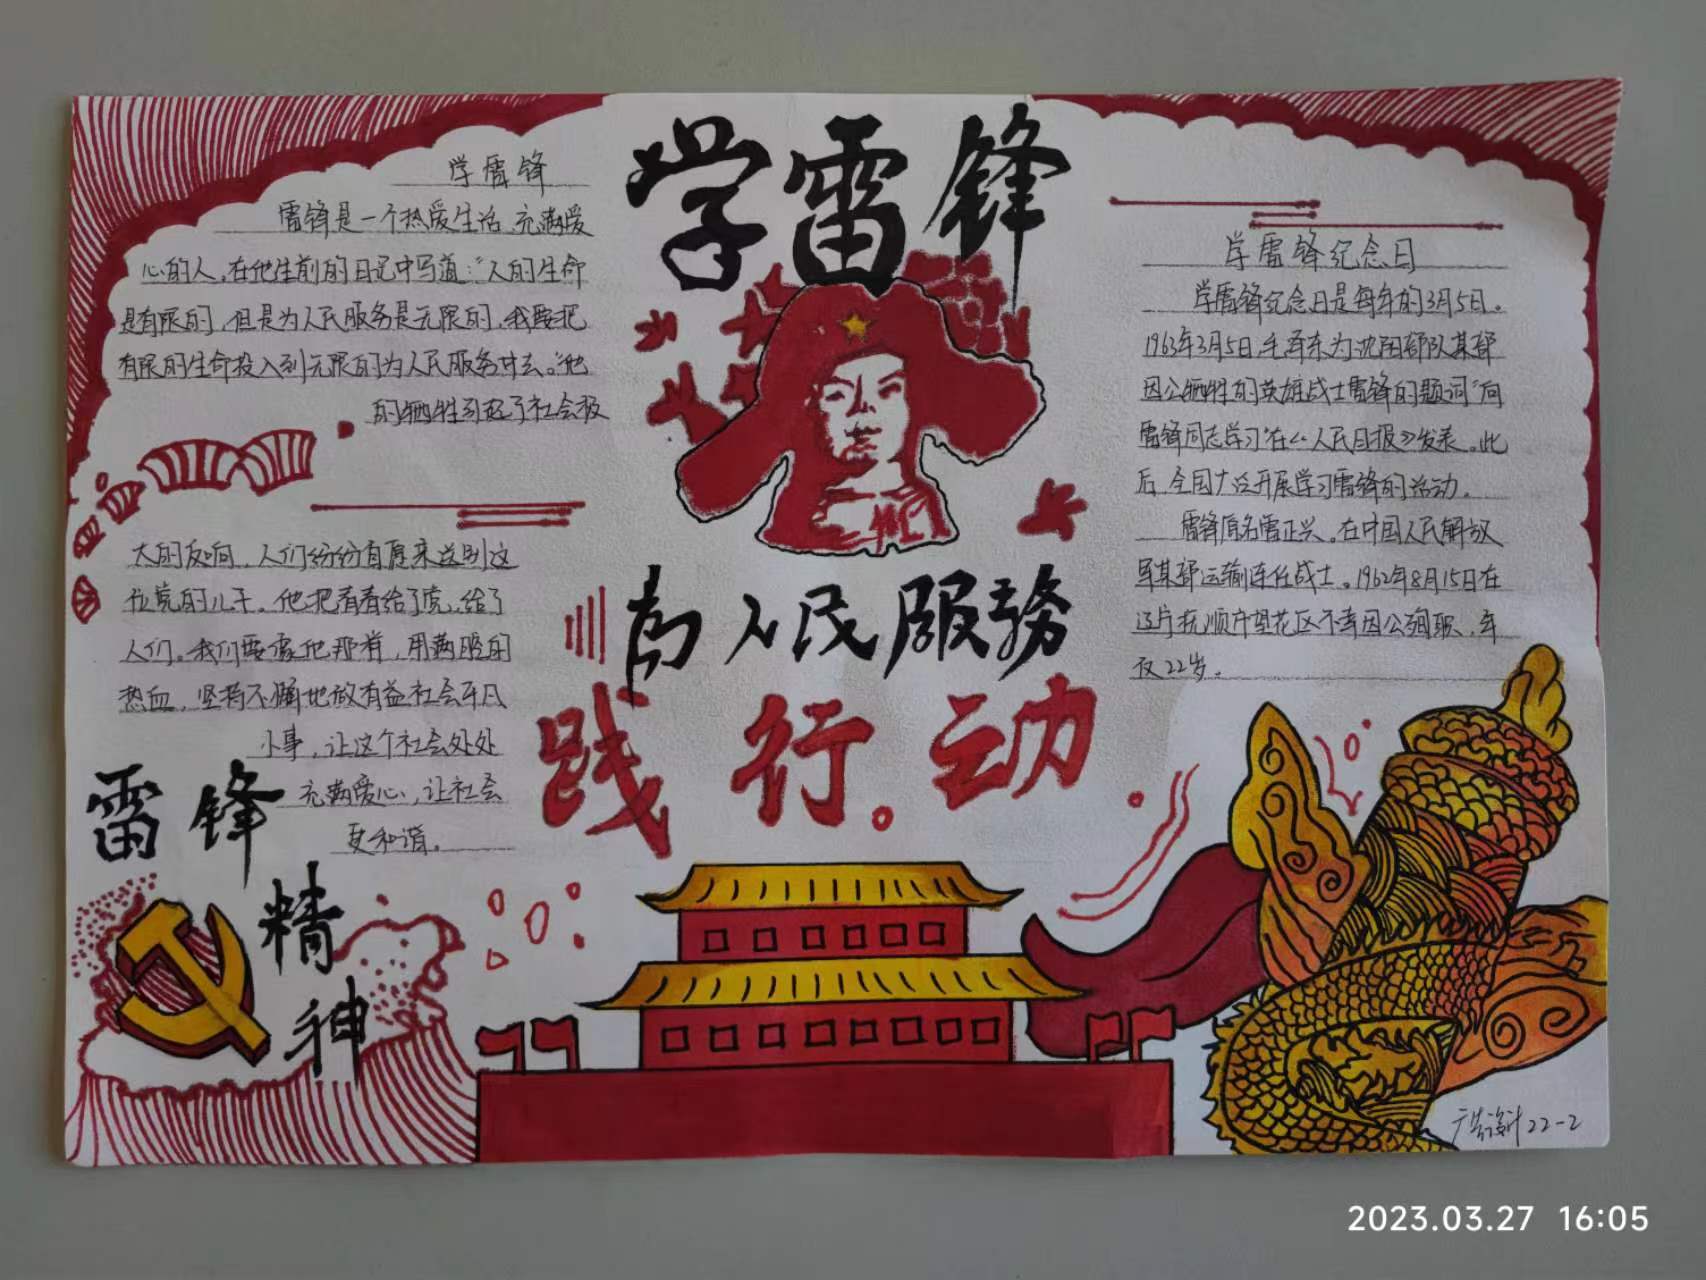 学雷锋
学雷锋
雷锋是一个热爱生活,充满爱
心的人,在他生前的日记中写道:“人的生命
是有限的,但是为人民服务是无限的,我要把
有限的生命投入到无限的为人民服务中去。”他
的牺牲引起了社会极
大的反响,人们纷纷自愿来送别这
位党的儿子。他把青春给了党,给了
人们。我们要像他那样,用满腔的
热血,坚持不懈地做有益社会平凡
小事,让这个社会处处
充满爱心,让社会
更和谐。
学雷锋纪念日
学雷锋纪念日是每年的3月5日。
1963年3月5日,毛泽东为沈阳部队某部
因公牺牲的英雄战士雷锋的题词“向
雷锋同志学习”在《人民日报》发表。此
后,全国广泛开展学习雷锋的活动。
雷锋原名雷正兴。在中国人民解放
军某部运输连任战士。1962年8月15日在
辽宁抚顺市望花区不幸因公殉职,年
仅22岁。
为人民服務
践行动
雷锋
精
神
广告设计22-2
2023.03.27 16:05